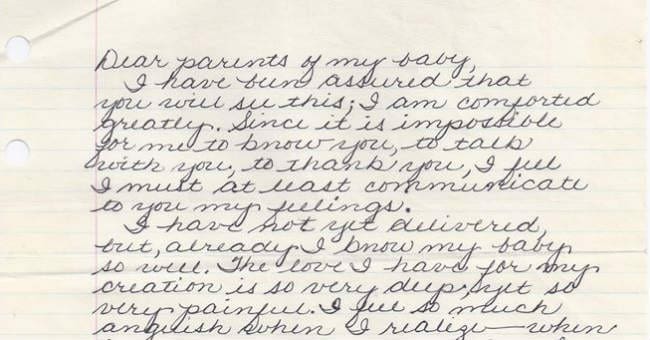 Dear parents of my baby,
I have been assured that
you will see this; I am comforted
greatly. Since it is impossible
for me to know you, to talk
with you, to thank you, I feel
I must at least communicate
to you my feelings.
I have not yet delivered,
but, already I know my baby
so well. The love I have for my
creation is so very deep, yet so
very painful. I feel so much
anguish when I realize—when